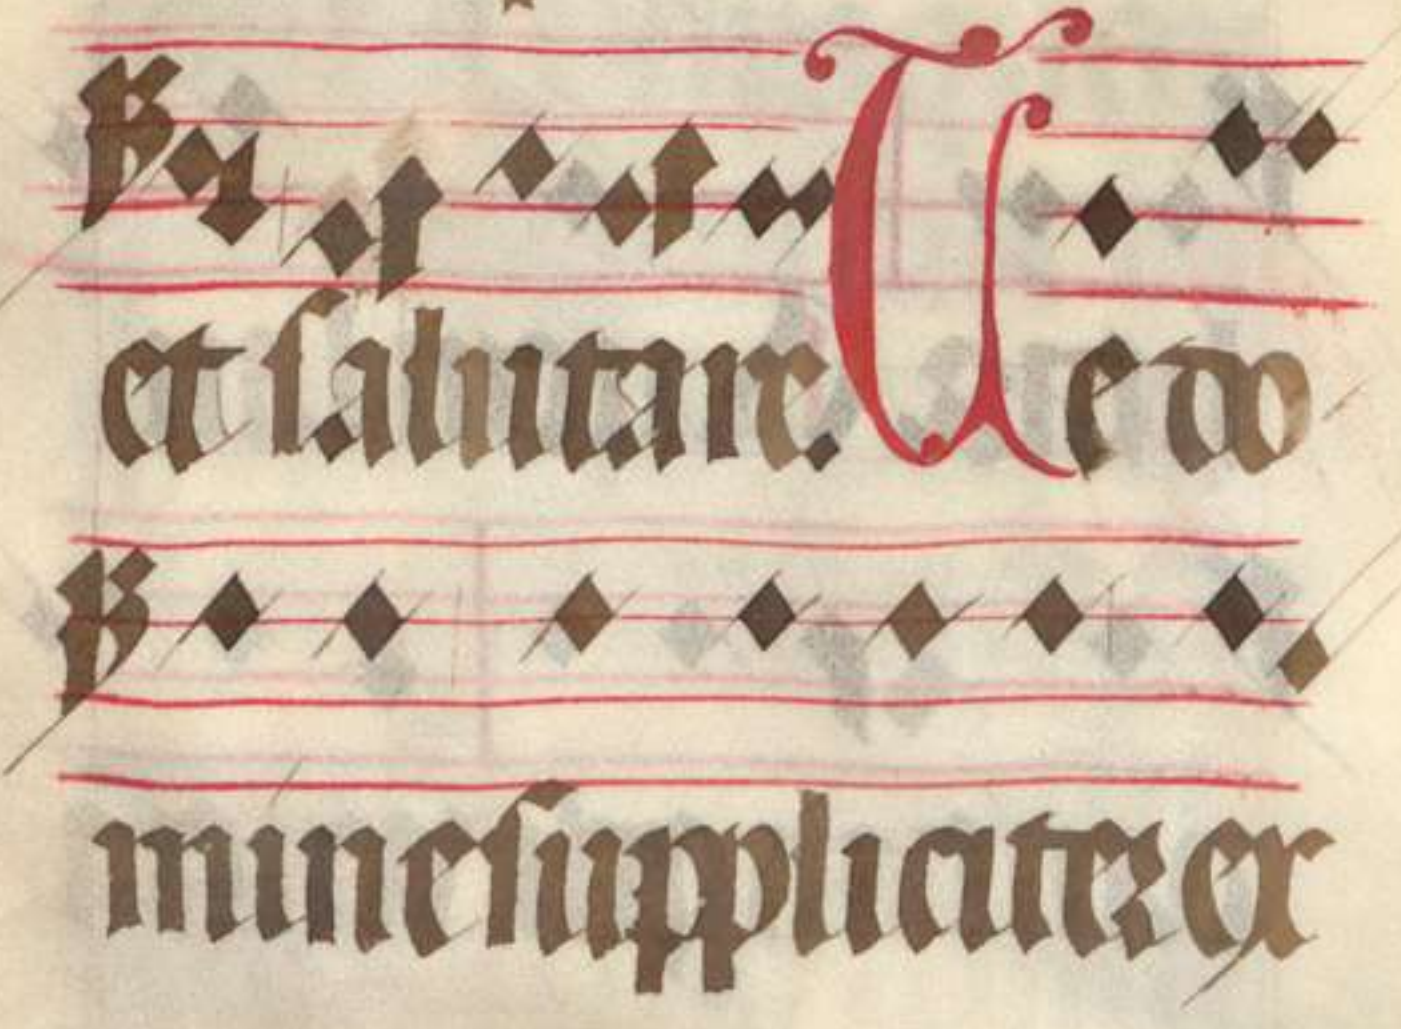 et salutare. Te do
mine suppliciter ex